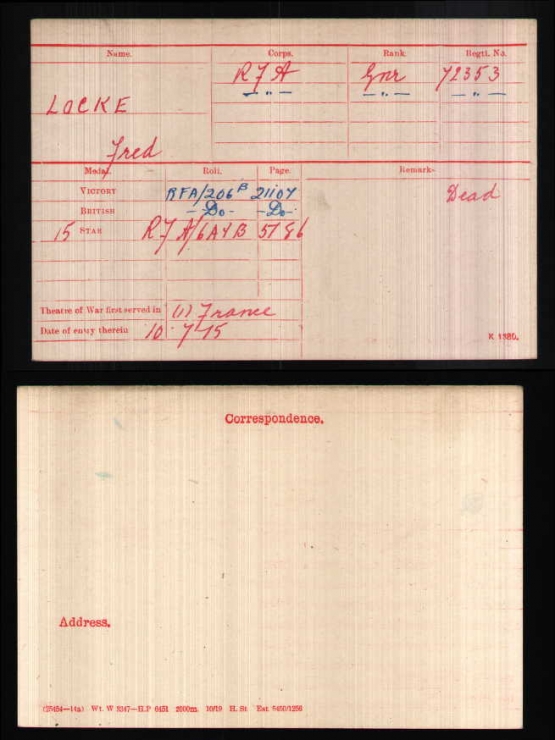 Name. Corps. Rank Regtl. No.
R F A Gnr 72353
— " — — " — — " —
LOCKE
Fred
Medal. Roll. Page. Remarks
VICTORY RFA/206 B 21107 Dead
BRITISH - Do - - Do -
15 STAR R F A/6A&B 5786
Theatre of War first served in (1) France
Date of entry therein 10·7·15
K 1380.
Correspondence.
Address.
(25454—14a) Wt. W 5347—H.P 6451 2000m. 10/19 H. St